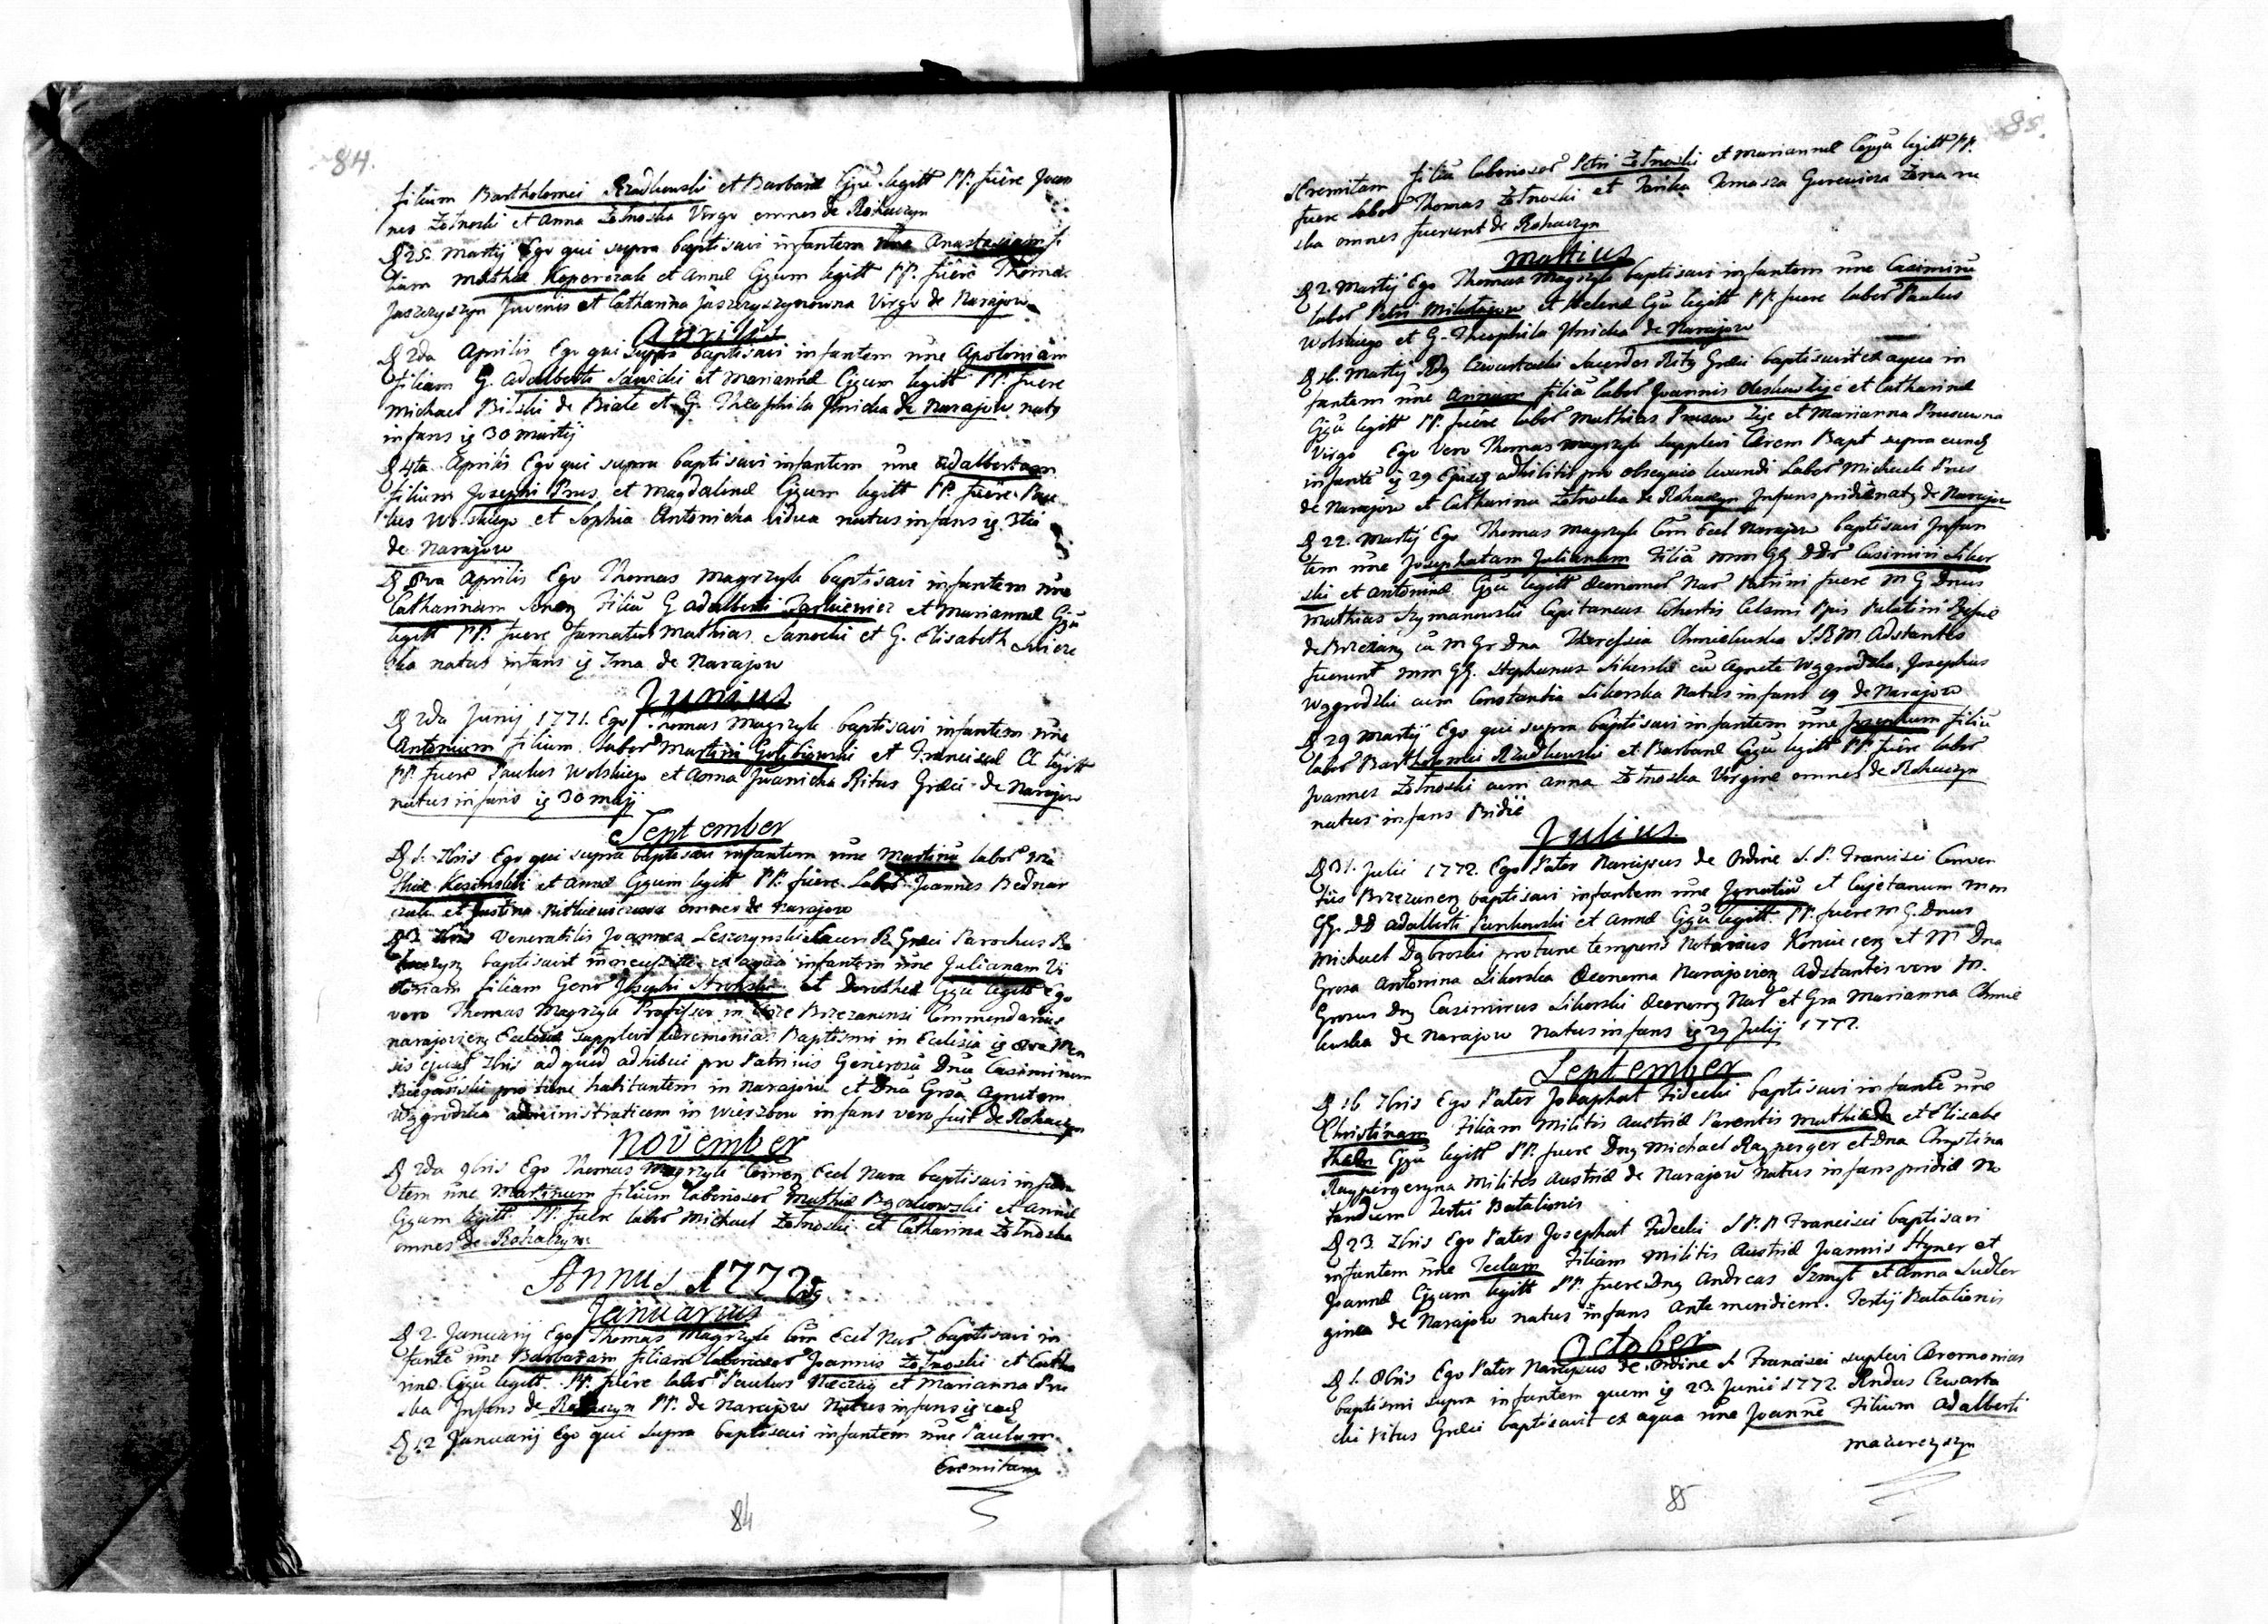 84.
filium Bartholomei Rzadkowski et Barbaræ Cjgu legitt PP. fuêre Joan
nes Zotnoski et Anna Zotnoska Virgo omnes de Rohaczyn
D 25. Martij Ego qui supra baptisavi infantem nne Anastasiam fi
liam Mathiæ Koporczak et Annæ Cjgum legitt PP. fuêre Thomas
Jaszczyszyn Juvenis et Catharina Jaszczyszynowna Virgo de Narajow
Aprilis
D 2da Aprilis Ego qui supra baptisavi infantem nne Apoloniam
filiam G. Adalberti Sawicki et Mariannæ Cjgum legitt PP. fuere
Michael Bilski de Biale et G. Theophila Jlnicka de Narajow natg
infans ig 30 martij
D 4ta Aprilis Ego qui supra baptisavi infantem nne Adalbertum
filium Josephi Prus et Magdalenæ Cjgum legitt PP. fuêre Pau
lus Wolskiego et Sophia Antonicha vidua natus infans ig 3tia
de Narajow
D 8va Aprilis Ego Thomas Magrzyk baptisavi infantem nne
Catharinam Senen Filiã G Adalberti Jarkiewicz et Mariannæ Cjgu
legitt PP. fuere famatus Mathias Sanocki et G. Elisabeth
ska natus infans ig 7ma de Narajow
Junius
D 2da Junij 1771. Ego Thomas Magrzyk baptisavi infantem nne
Antonium filium labor Martini Gołębiowski et Franciscæ Cl legitt
PP. fuere Paulus Wolskiego et Anna Jwanicha Ritus Græci de Narajow
natus infans ig 30 maij
September
D 1. 7bris Ego qui supra baptisavi infantem nne Martinũ labor Ma
thiæ Kosinski et Annæ Cjgum legitt PP. fuêre Labor Joannes Bednar
czuk et Justina omnes de Narajow
D 3 7bris Venerabilis Joannes Leszczynski Sacer R Græci Parochus Ro
haczyn baptisavit in necessitate ex aqua infantem nne Julianam Vi
ctoriam filiam Geno Josephi et Dorotheæ Cjgu legitt Ego
vero Thomas Magrzyk Professor in Brzezanensi Commendarius
narajovien Ecclesiæ supplevi Cæremonias Baptismi in Ecclesia ig 8va Men
sis ejusd 7bris ad quod adhibui pro Patrinis Generosũ Dnũ Casimirum
Biegański pro tunc habitantem in Narajow et Dnã Grosã Agnetem
Wągrodzka administraticem in Wierzbow infans vero fuit de Rohaczyn
November
D 2da 9bris Ego Thomas Magrzyk Comen Eccl Nara baptisavi infan
tem nne Martinum filium laboriosor Mathiæ et Annæ
Cjgum legitt PP. fuere labor Michael Zotnoski et Catharina Zotnoska
omnes de Rohaczyn
Annus 1772dg
Januarius
D 2. Januarij Ego Thomas Magrzyk Com Eccl Nar baptisavi in
fantẽ nne Barbaram filiam laboriosor Joannis Zotnoski et Catha
rinæ Cjgu legitt. PP. fuêre labor Paulus et Marianna Pru
ska Infans de Rohaczyn PP. de Narajow natus infans ig ead
D 12 Januarij Ego qui supra baptisavi infantem nne Paulum
Eremitam
84
85.
Eremitam filiũ laboriosor Petri Zotnoski et Mariannæ Cjgu legitt PP.
fuere labor Thomas Zotnoski et Parska Tomasza Gurewicza Zona ru
ska omnes fuerunt de Rohaczyn
Martius
D 2. Martij Ego Thomas Magrzyk baptisavi infantem nne Casimirũ
labor Petri Mikołajow et Helenæ Cjgu legitt PP. fuere labor Paulus
Wolskiego et G. Theophila Jlnicka de Narajow
D 16. Martij Rdg Czwartacki Sacerdos Ritg Græci baptisavit ex aqua in
fantem nne Annam filiã labor Joannis Oleskow Zięć et Catharinæ
Cjgu legitt PP. fuêre labor Mathias Prusow Zięć et Marianna Prusowna
Virgo Ego Vero Thomas Magrzyk supplevi Cærem Bapt supra eand
infantẽ ig 29 Ejusd adhibitis pro obsequio levandi Labor Michaele Prus
de Narajow et Catharina Zotnoska de Rohaczyn Infans pridie natg de Narajow
D 22. Martij Ego Thomas Magrzyk Com Eccl Narajow baptisavi Infan
tem nne Josephatam Julianam Filiã mm GG DDor Casimiri Sikor
ski et Antoninæ Cjgu legitt œconomor Nar Patrini fuere M G. Dnus
Mathias Szymanowski Capitaneus Cohortis Celsmi Ppis Palatini Rssiæ
de Brzezany cu M Gr Dna Theressia Chmielewska S.R.M. Adstantes
fuerunt mm GG. Stephanus Sikorski cu Agnete Wągrodzka, Josephus
Wągrodzki cum Constantia Sikorska Natus infans 19 de Narajow
D 29 Martij Ego qui supra baptisavi infantem nne Josephum filiũ
labor Bartholomei Rzadkowski et Barbaræ Cjgu legitt PP. fuêre labor
Joannes Zotnoski cum Anna Zotnoska Virgine omnes de Rohaczyn
natus infans Pridie
Julius
D 31. Julii 1772. Ego Pater Narcyssus de Ordine S. P. Francisci Conven
tus Brzezanen baptisavi infantem nne Jgnatiũ et Cajetanum mm
GG. DD Adalberti Pienkowski et Annæ Cjgu legitt. PP. fuere M G. Dnus
Michael Dąbroski pro tunc temporis Notarius et M Dna
Grosa Antonina Sikorska Œconoma Narajovien Adstantes vero M.
Grosus Dng Casimirus Sikorski Œconomg Nar et Gra Marianna Chmie
lewska de Narajow Natus infans ig 29 Julij 1772.
September
D 16 7bris Ego Pater Josaphat Fidecki baptisavi infantẽ nne
Christinam Filiam Militis Austriæ Parentis Mathiæ et Elisabe
thæ Cjgu legitt PP. fuere Dng Michael Rayperger et Dna Chrystina
Raypergeryna Milites Austriæ de Narajow Natus infans pridie No
tandum Tertii Batalionis
D 23. 7bris Ego Pater Josephat Fidecki S P. P Francisci baptisavi
infantem nne Teclam Filiam Militis Austriæ Joannis Hyner et
Joannæ Cjgum legitt PP. fuere Dng Andreas Szmyt et Anna Sudler
ginea de Narajow natus infans ante meridiem. Tertij Batalionis
October
D 1. 8bris Ego Pater Narcyssus de Ordine S Francisci suplevi Cæremonias
baptismi supra infantem quem ig 23. Junii 1772. Rndus Czwarta
cki ritus Græci baptisavit ex aqua nne Joannẽ Filium Adalberti
Mazurczyszyn
85